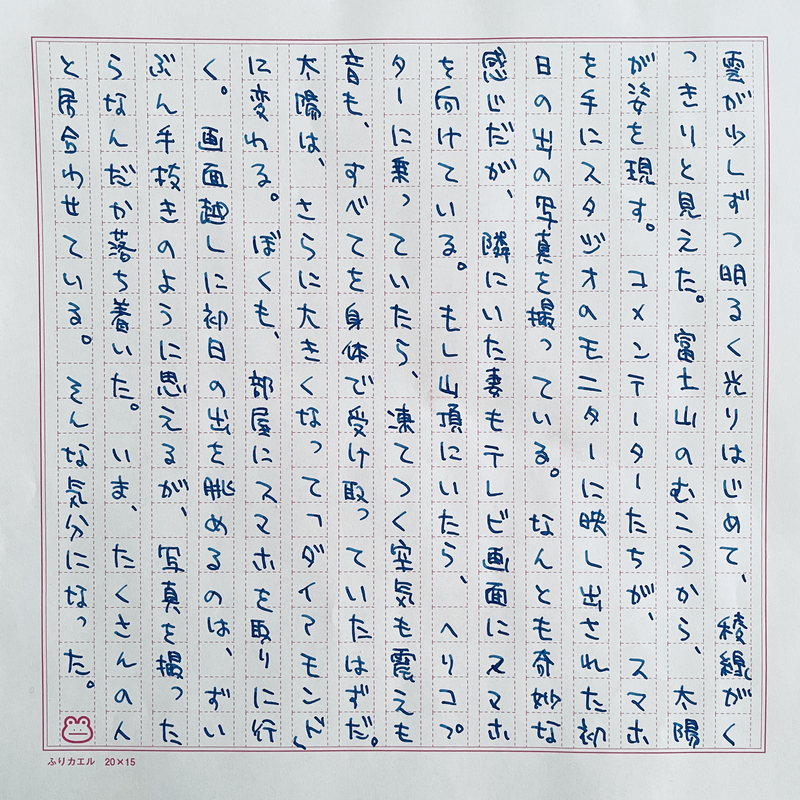 雲が少しずつ明るく光りはじめて、稜線がく
っきりと見えた。富士山のむこうから、太陽
が姿を現す。コメンテーターたちが、スマホ
を手にスタジオのモニターに映し出された初
日の出の写真を撮っている。なんとも奇妙な
感じだが、隣にいた妻もテレビ画面にスマホ
を向けている。もし山頂にいたら、ヘリコプ
ターに乗っていたら、凍てつく空気も震えも
音も、すべてを身体で受け取っていたはずだ。
太陽は、さらに大きくなって「ダイアモンド」
に変わる。ぼくも、部屋にスマホを取りに行
く。画面越しに初日の出を眺めるのは、ずい
ぶん手抜きのように思えるが、写真を撮った
らなんだか落ち着いた。いま、たくさんの人
と居合わせている。そんな気分になった。
ふりカエル 20×15